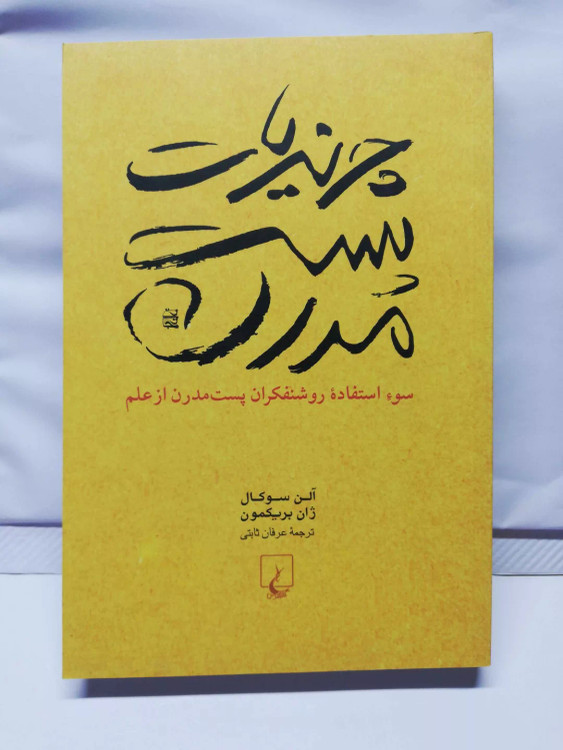 چرندیات
پست
مدرن
سوءِ استفادهٔ روشنفکران پست‌مدرن از علم
آلن سوکال
ژان بریکمون
ترجمهٔ عرفان ثابتی
ققنوس